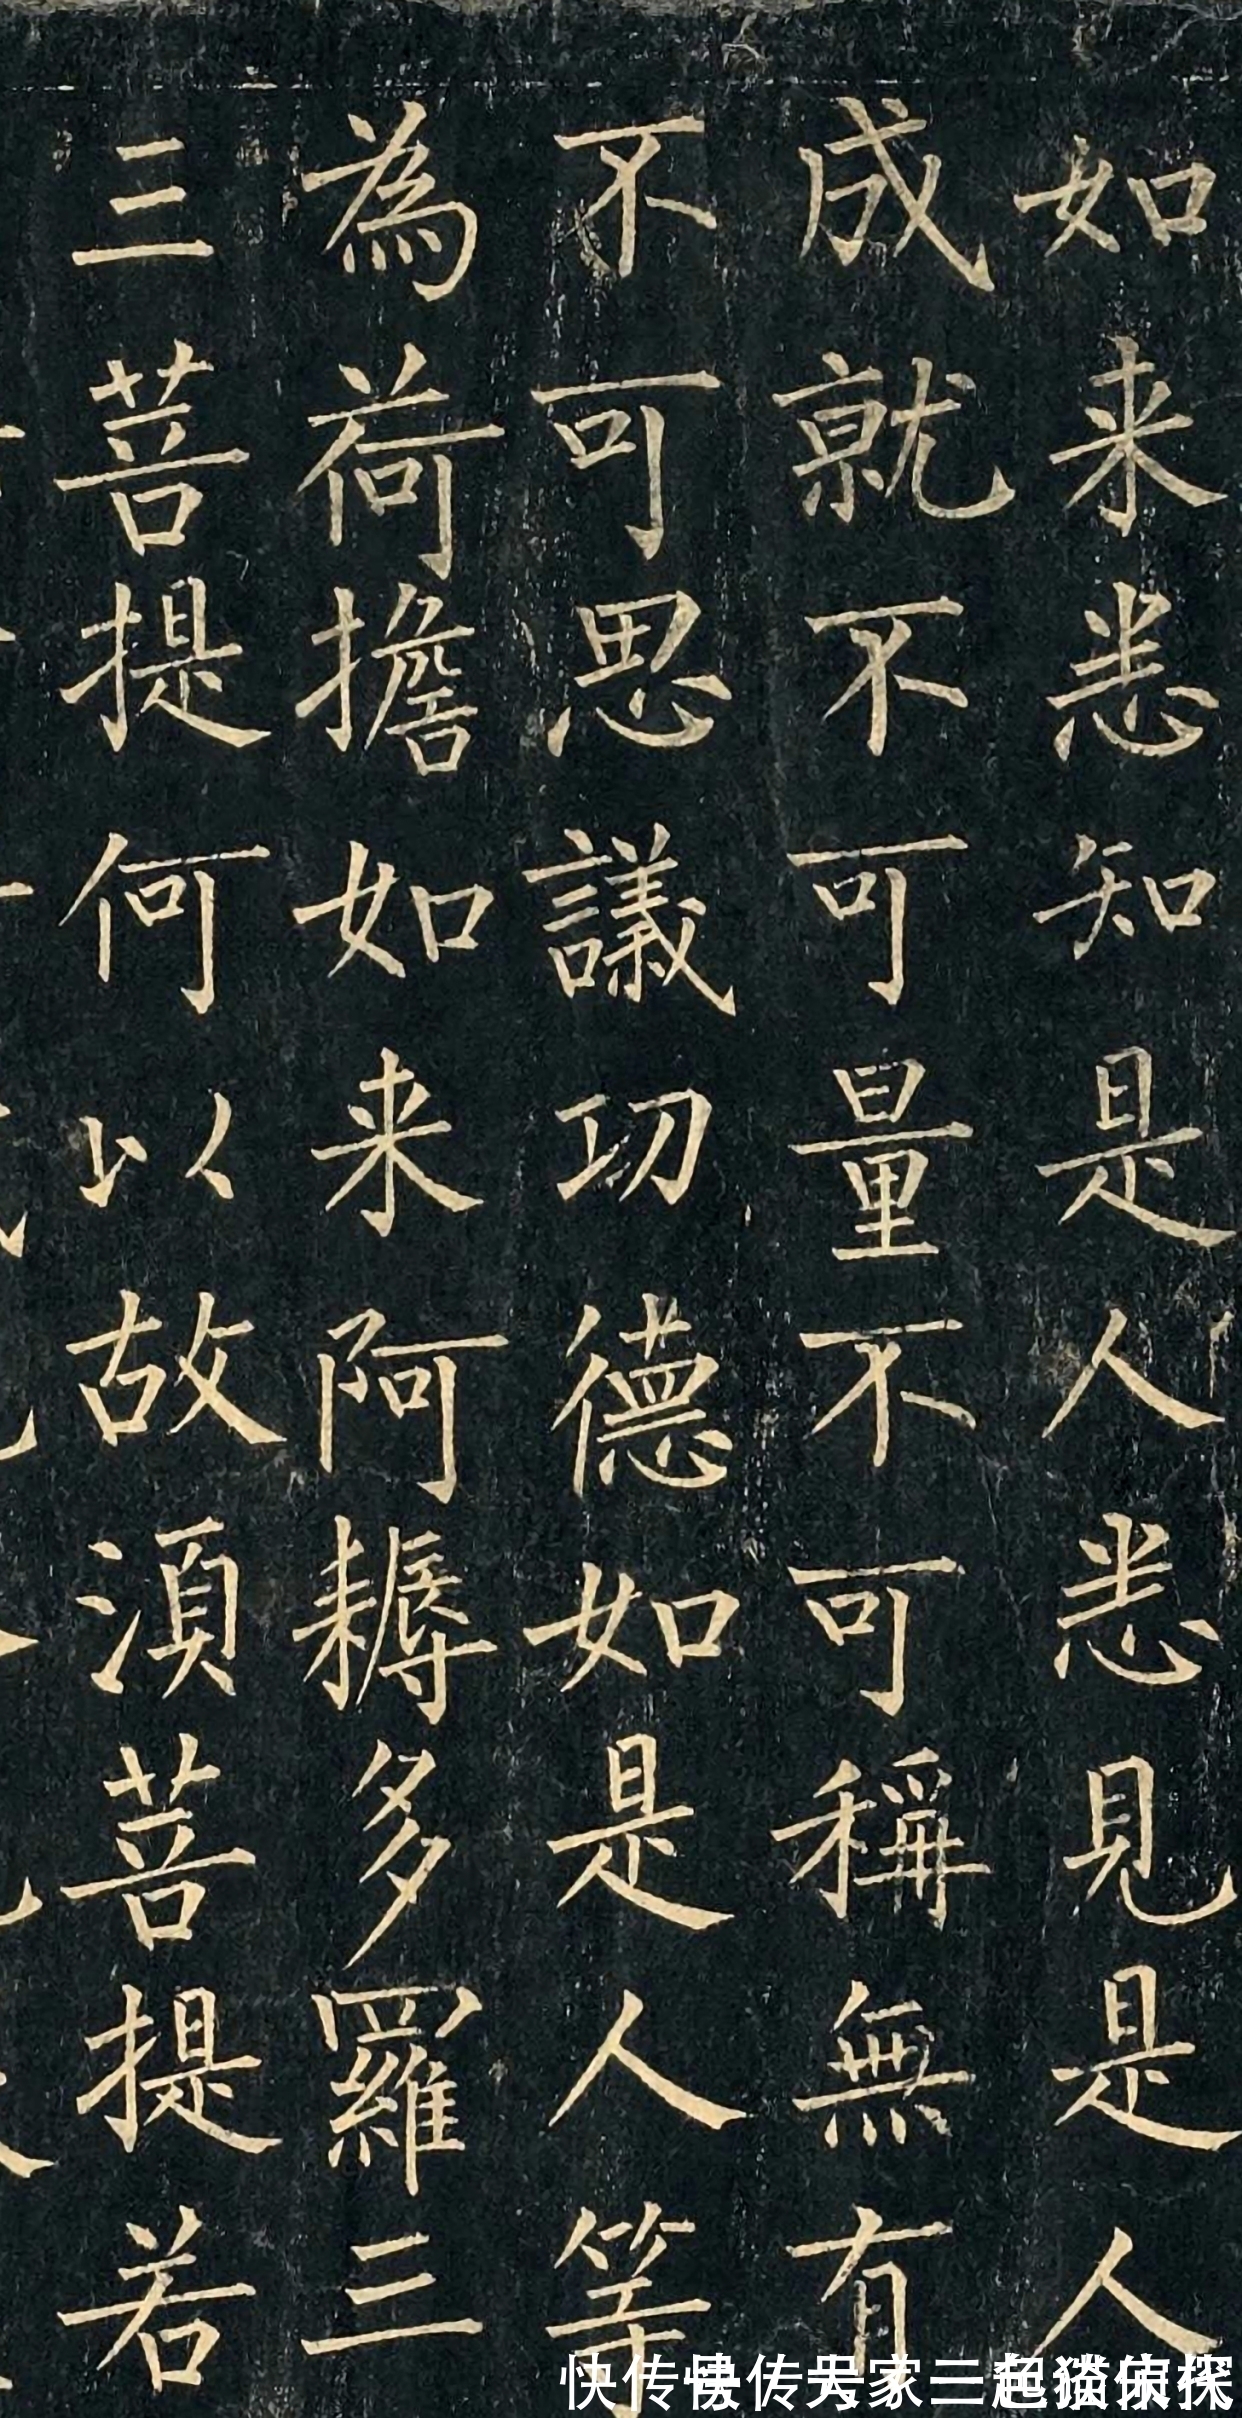 如来悉知是人悉見是人
成就不可量不可稱無有
不可思議功德如是人等
為荷擔如来阿耨多羅三
三菩提何以故須菩提若